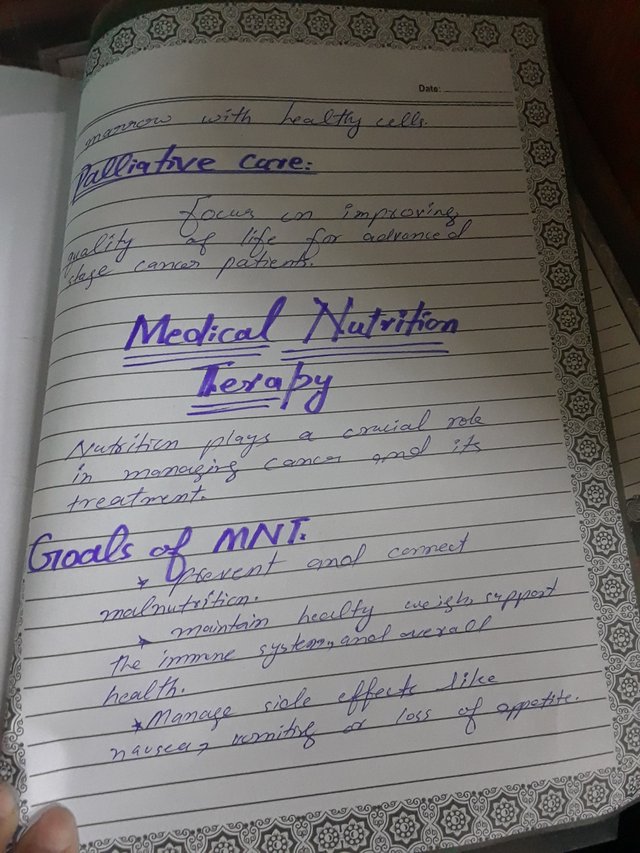 Date:
marrow with healthy cells.
Palliative Care:
focus on improving
quality of life for advanced
stage cancer patients.
Medical Nutrition
Therapy
Nutrition plays a crucial role
in managing cancer and its
treatment.
Goals of MNT.
* prevent and correct
malnutrition.
* maintain healty weigh, support
the immune system, and overall
health.
* Manage side effects like
nausea, vomiting or loss of appetite.